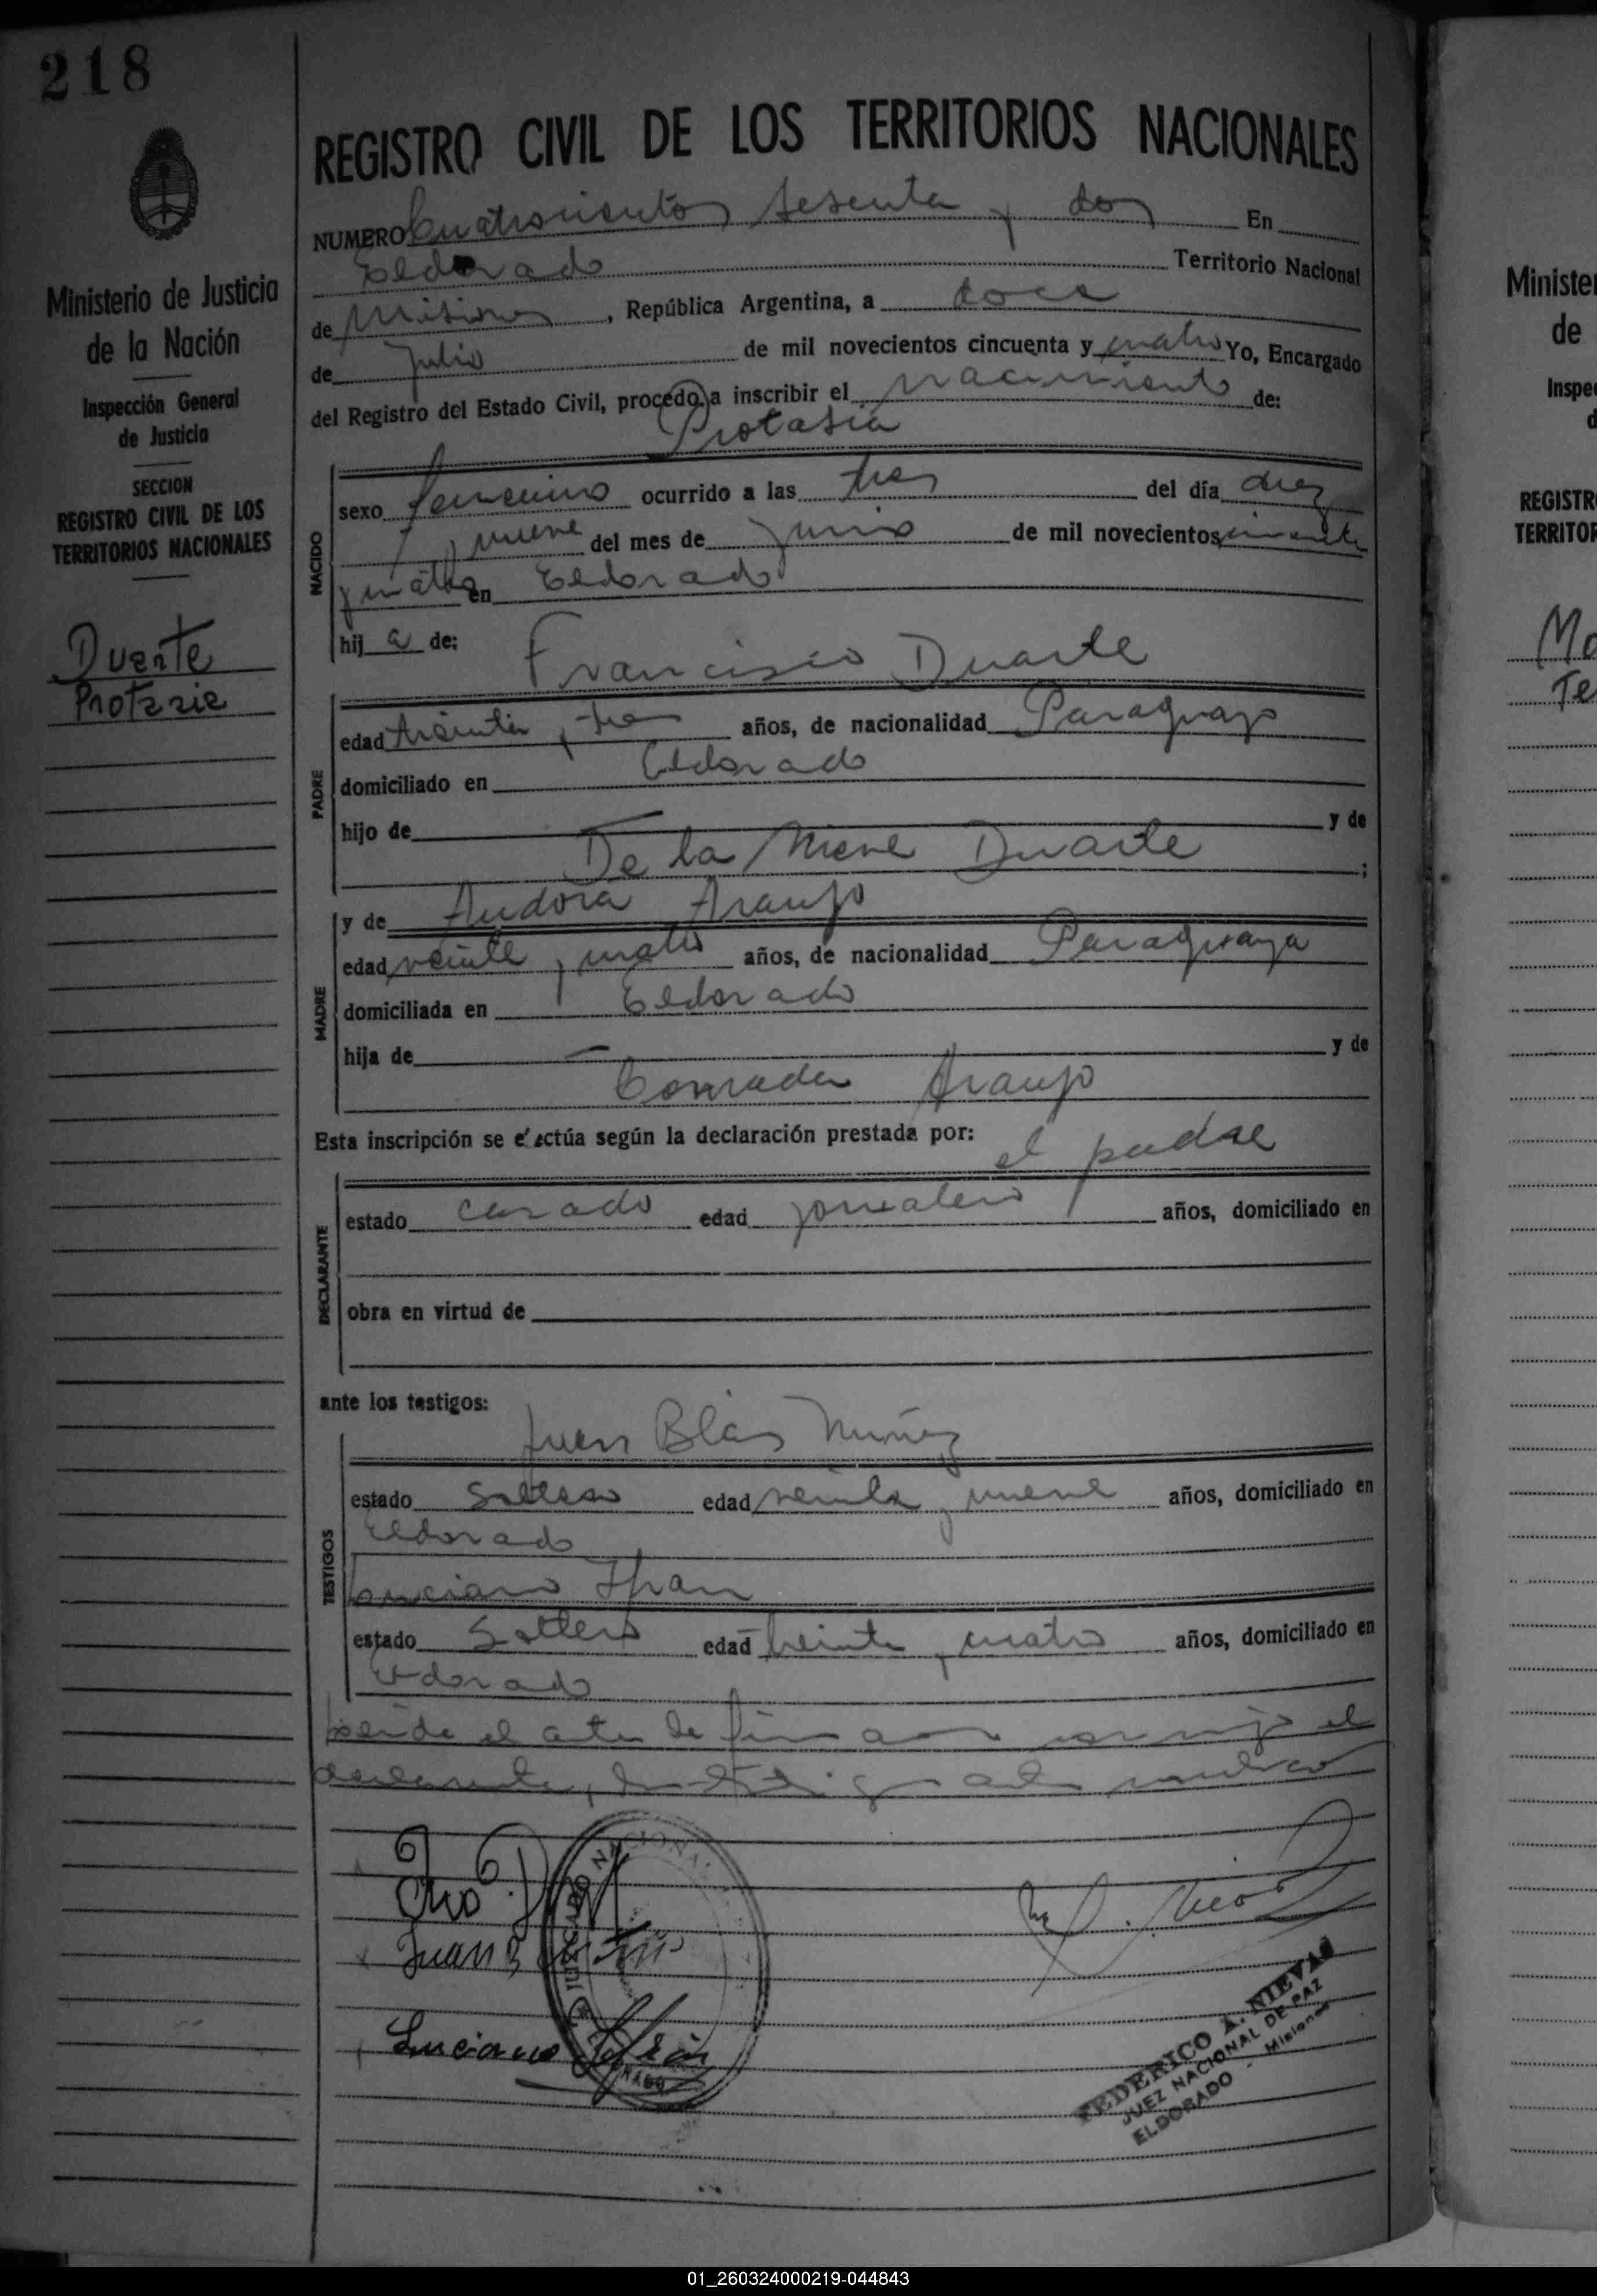 218
REGISTRO CIVIL DE LOS TERRITORIOS NACIONALES
NUMERO Cuatrocientos sesenta y dos En
Eldorado Territorio Nacional
de Misiones, República Argentina, a doce
de Julio de mil novecientos cincuenta y cuatro Yo, Encargado
del Registro del Estado Civil, procedo a inscribir el nacimiento de:
Protasia
NACIDO
sexo femenino ocurrido a las tres del día diez
y nueve del mes de Junio de mil novecientos cincuenta
y cuatro en Eldorado
hija de: Francisco Duarte
PADRE
edad treinta y tres años, de nacionalidad Paraguayo
domiciliado en Eldorado
hijo de — y de
De la Nieve Duarte ;
y de Audora Araujo
MADRE
edad veinte y cuatro años, de nacionalidad Paraguaya
domiciliada en Eldorado
hija de — y de
Conrada Araujo
Esta inscripción se efectúa según la declaración prestada por: el padre
DECLARANTE
estado casado edad jornalero años, domiciliado en
obra en virtud de
ante los testigos:
Juan Blas Nuñez
TESTIGOS
estado soltero edad veinte y nueve años, domiciliado en
Eldorado
Luciano
estado Soltero edad veinte y cuatro años, domiciliado en
Eldorado
el acta la firma conmigo el
declarante,
Juan B
Luciano
NACIONAL
FEDERICO A. NIEVAS
JUEZ NACIONAL DE PAZ
ELDORADO - Misiones
Ministerio de Justicia
de la Nación
Inspección General
de Justicia
SECCION
REGISTRO CIVIL DE LOS
TERRITORIOS NACIONALES
Duarte
Protasia
Ministe
de
Inspe
d
REGISTR
TERRITOR
Ma
Te
01_260324000219-044843